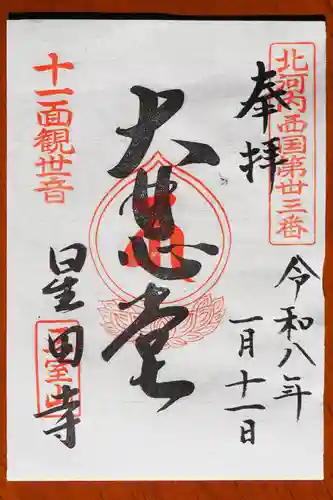 北河内西国第卅三番
奉拝
令和八年
一月十一日
大悲堂
十一面観世音
星田寺